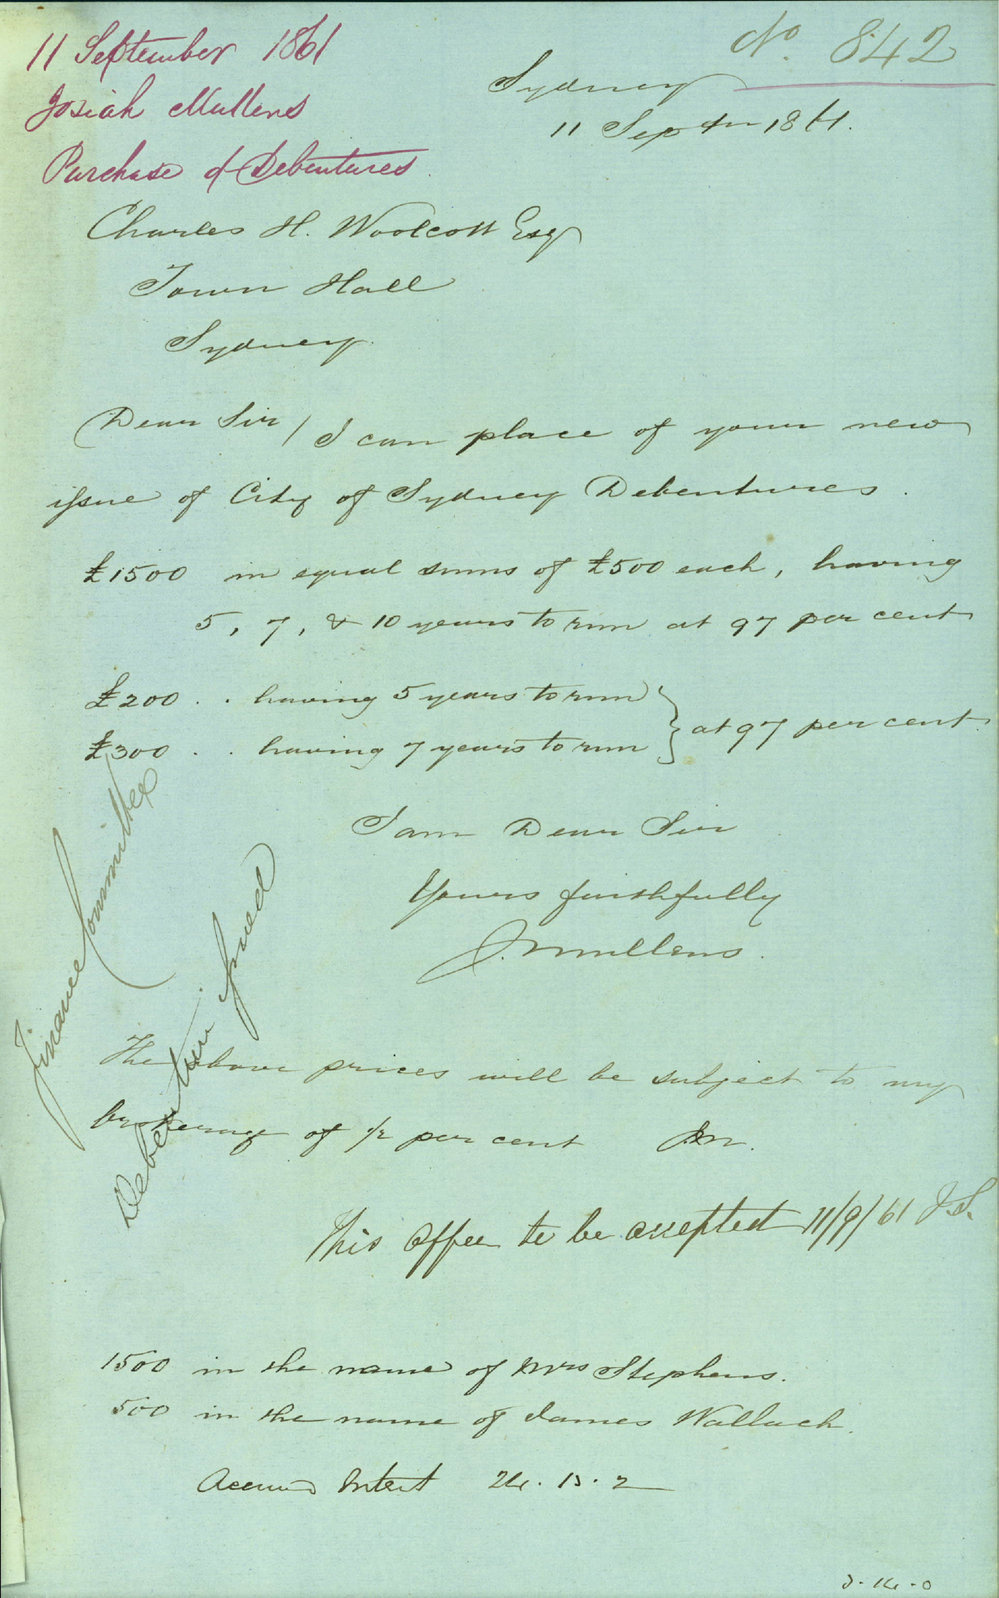 11 September 1861
Josiah Mullens
Purchase of Debentures
No. 842
Sydney
11 Septr 1861.
Charles H. Woolcott Esq
Town Hall
Sydney.
Dear Sir / I can place of your new
issue of City of Sydney Debentures.
£1500 in equal sums of £500 each, having
5, 7, & 10 years to run at 97 per cent
£200 . . having 5 years to run
£300 . . having 7 years to run } at 97 per cent.
I am Dear Sir
Yours faithfully
J. Mullens.
Finance Committee
Debentures issued
The above prices will be subject to my
brokerage of 1/2 per cent JM.
This offer to be accepted 11/9/61 J.S.
1500 in the name of Mrs Stephens.
500 in the name of James Wallack.
Accrued Interst